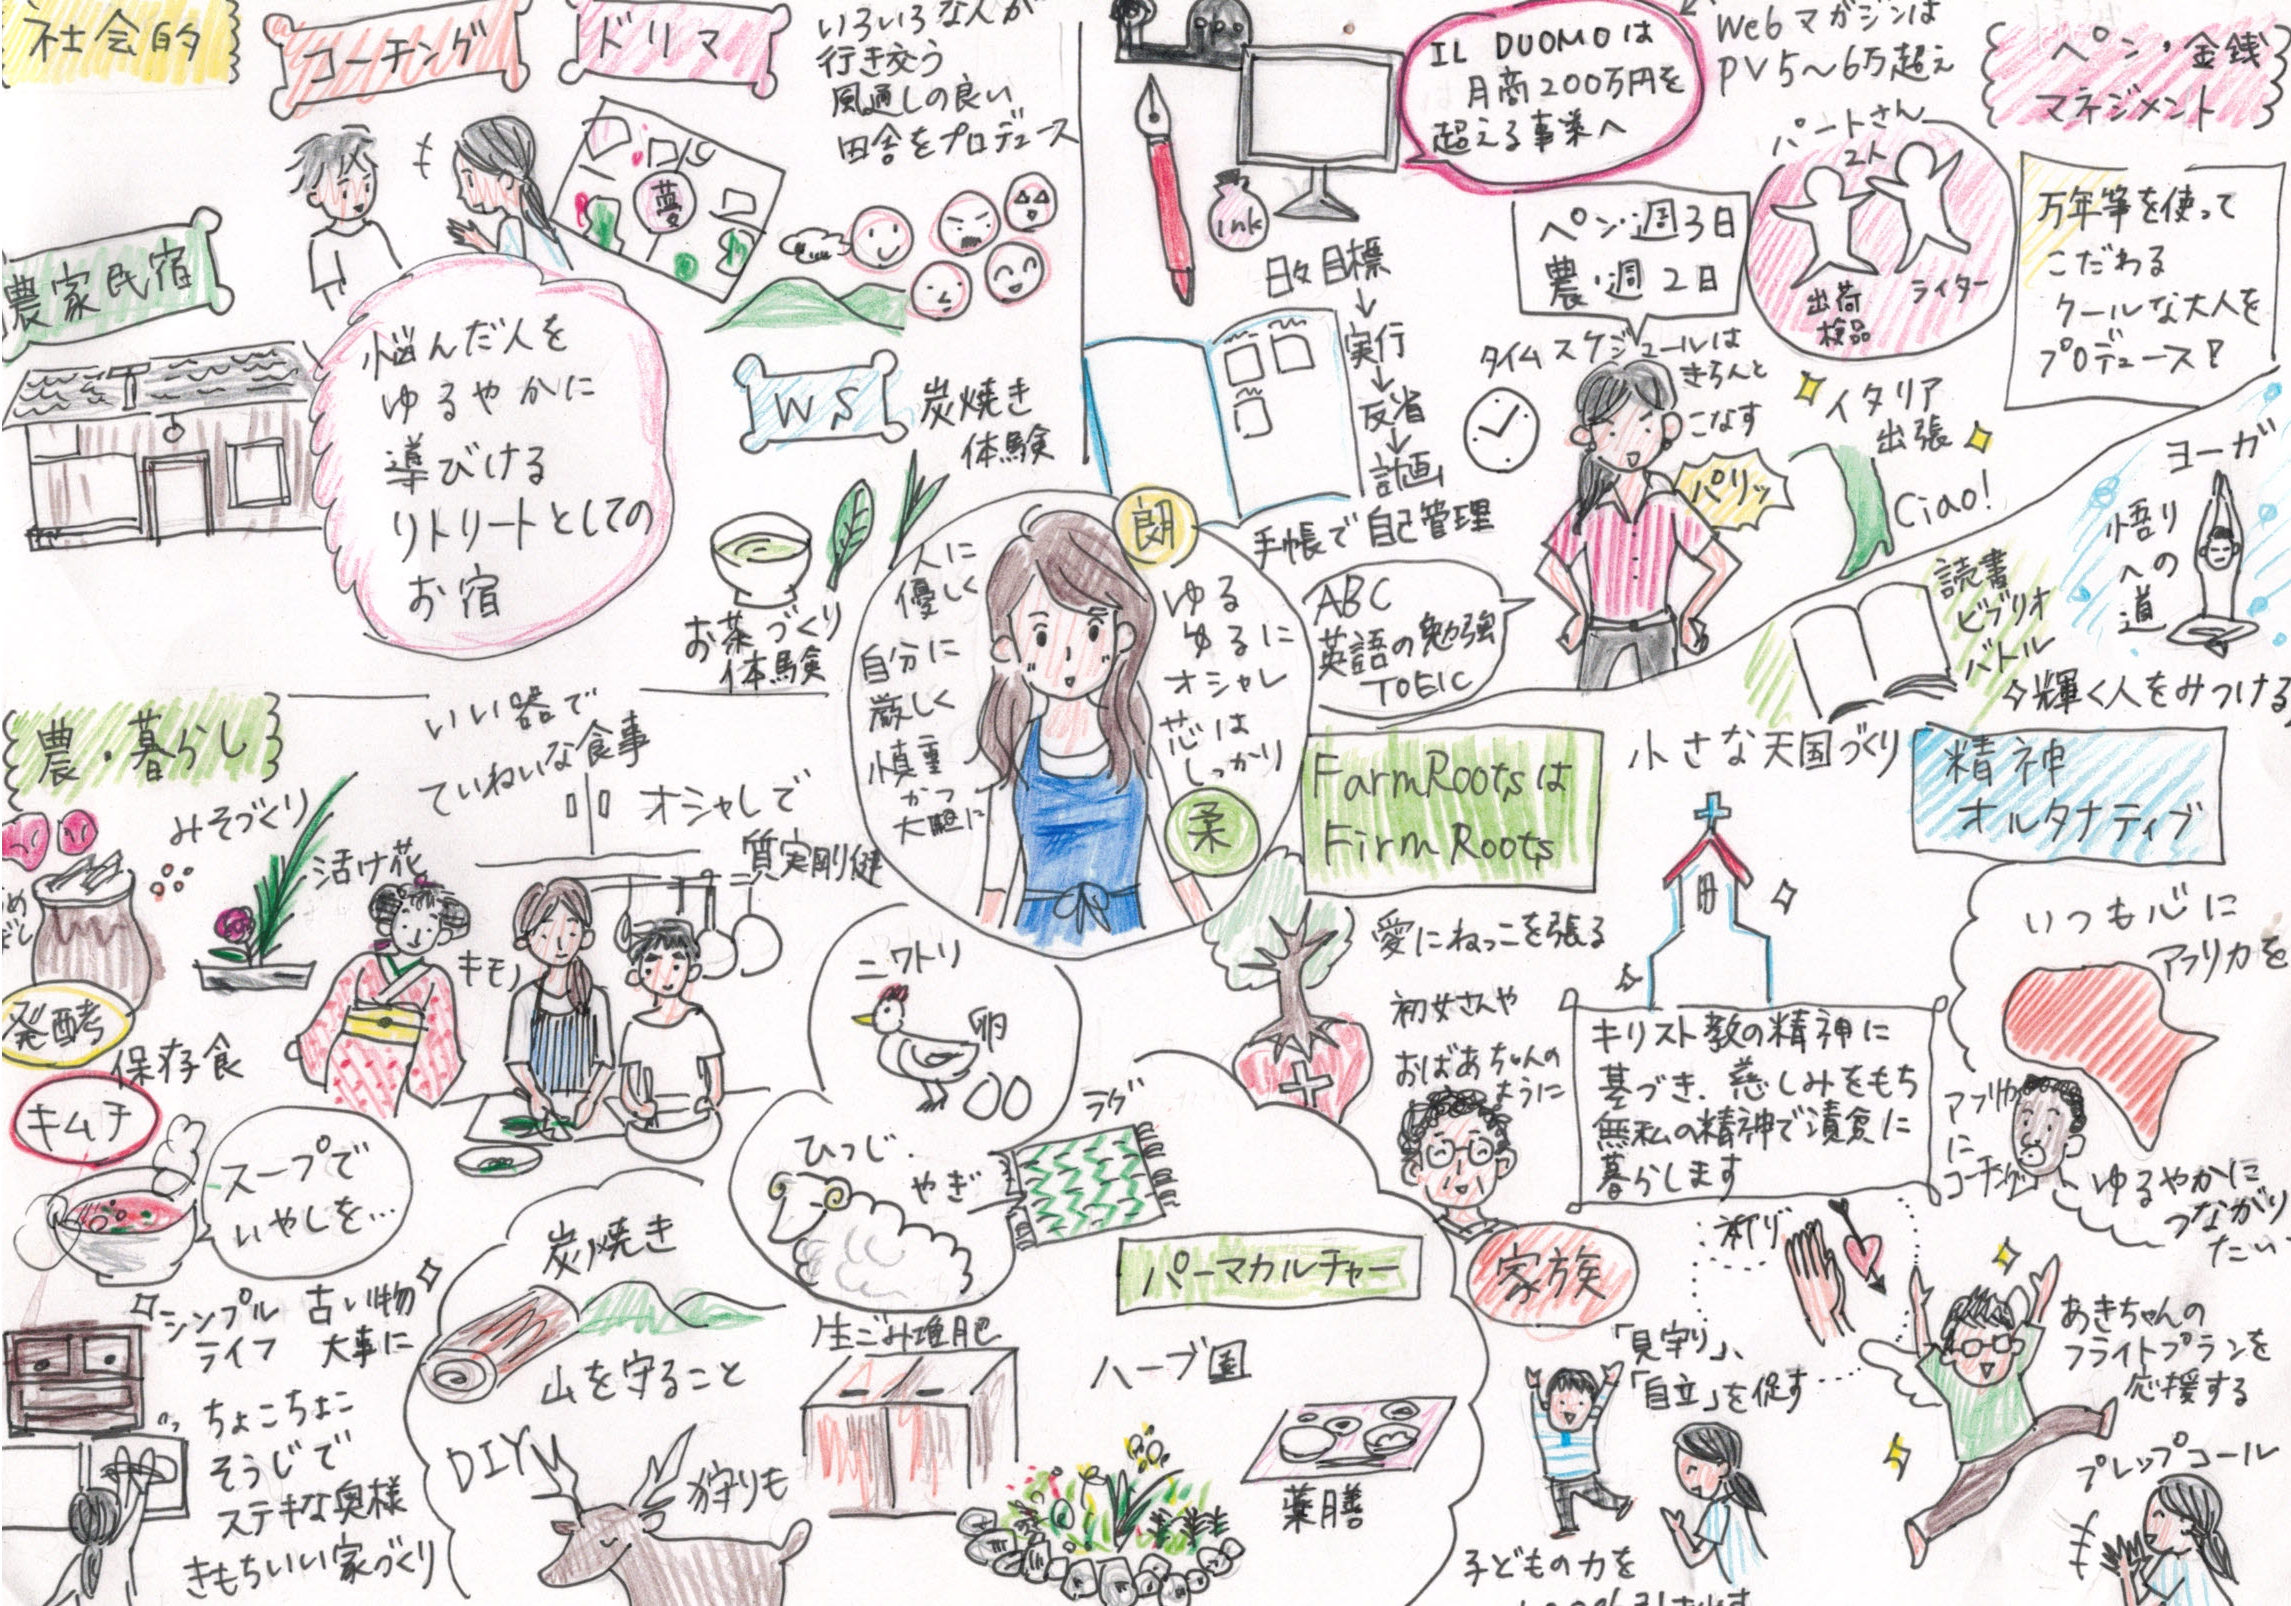 社会的
コーチング
ドリマ
いろいろな人が
行き交う
風通しの良い
田舎をプロデュース
夢
農家民宿
悩んだ人を
ゆるやかに
導びける
リトリートとしての
お宿
WS
炭焼き
体験
お茶づくり
体験
IL DUOMOは
月商200万円を
超える事業へ
Webマガジンは
PV5〜6万超え
ペン・金銭
マネジメント
ink
パートさん
2人
出荷
検品
ライター
ペン・週3日
農・週2日
万年筆を使って
こだわる
クールな大人を
プロデュース!
日々目標
↓
実行
↓
反省
↓
計画
手帳で自己管理
タイムスケジュールは
きちんと
こなす
パリッ
イタリア
出張
Ciao!
ABC
英語の勉強
TOEIC
ヨーガ
悟り
への
道
読書
ビブリオ
バトル
輝く人をみつける
朗
人に
優しく
自分に
厳しく
慎重
かつ
大胆に
ゆる
ゆるに
オシャレ
芯は
しっかり
柔
農・暮らし
いい器で
ていねいな食事
オシャレで
質実剛健
みそづくり
活け花
キモノ
発酵
保存食
キムチ
スープで
いやしを…
シンプル
ライフ
古い物
大事に
ちょこちょこ
そうじで
ステキな奥様
きもちいい家づくり
ニワトリ
卵
ひつじ.
やぎ
ラグ
炭焼き
山を守ること
DIY
狩りも
パーマカルチャー
生ごみ堆肥
ハーブ園
薬膳
FarmRootsは
FirmRoots
愛にねっこを張る
小さな天国づくり
精神
オルタナティブ
初女さんや
おばあちゃんの
ように
キリスト教の精神に
基づき、慈しみをもち
無私の精神で清貧に
暮らします
いつも心に
アフリカを
アフリカ
に
コーチング
ゆるやかに
つながり
たい
家族
祈り
「見守り」、
「自立」を促す
子どもの力を
あきちゃんの
フライトプランを
応援する
プレップコール